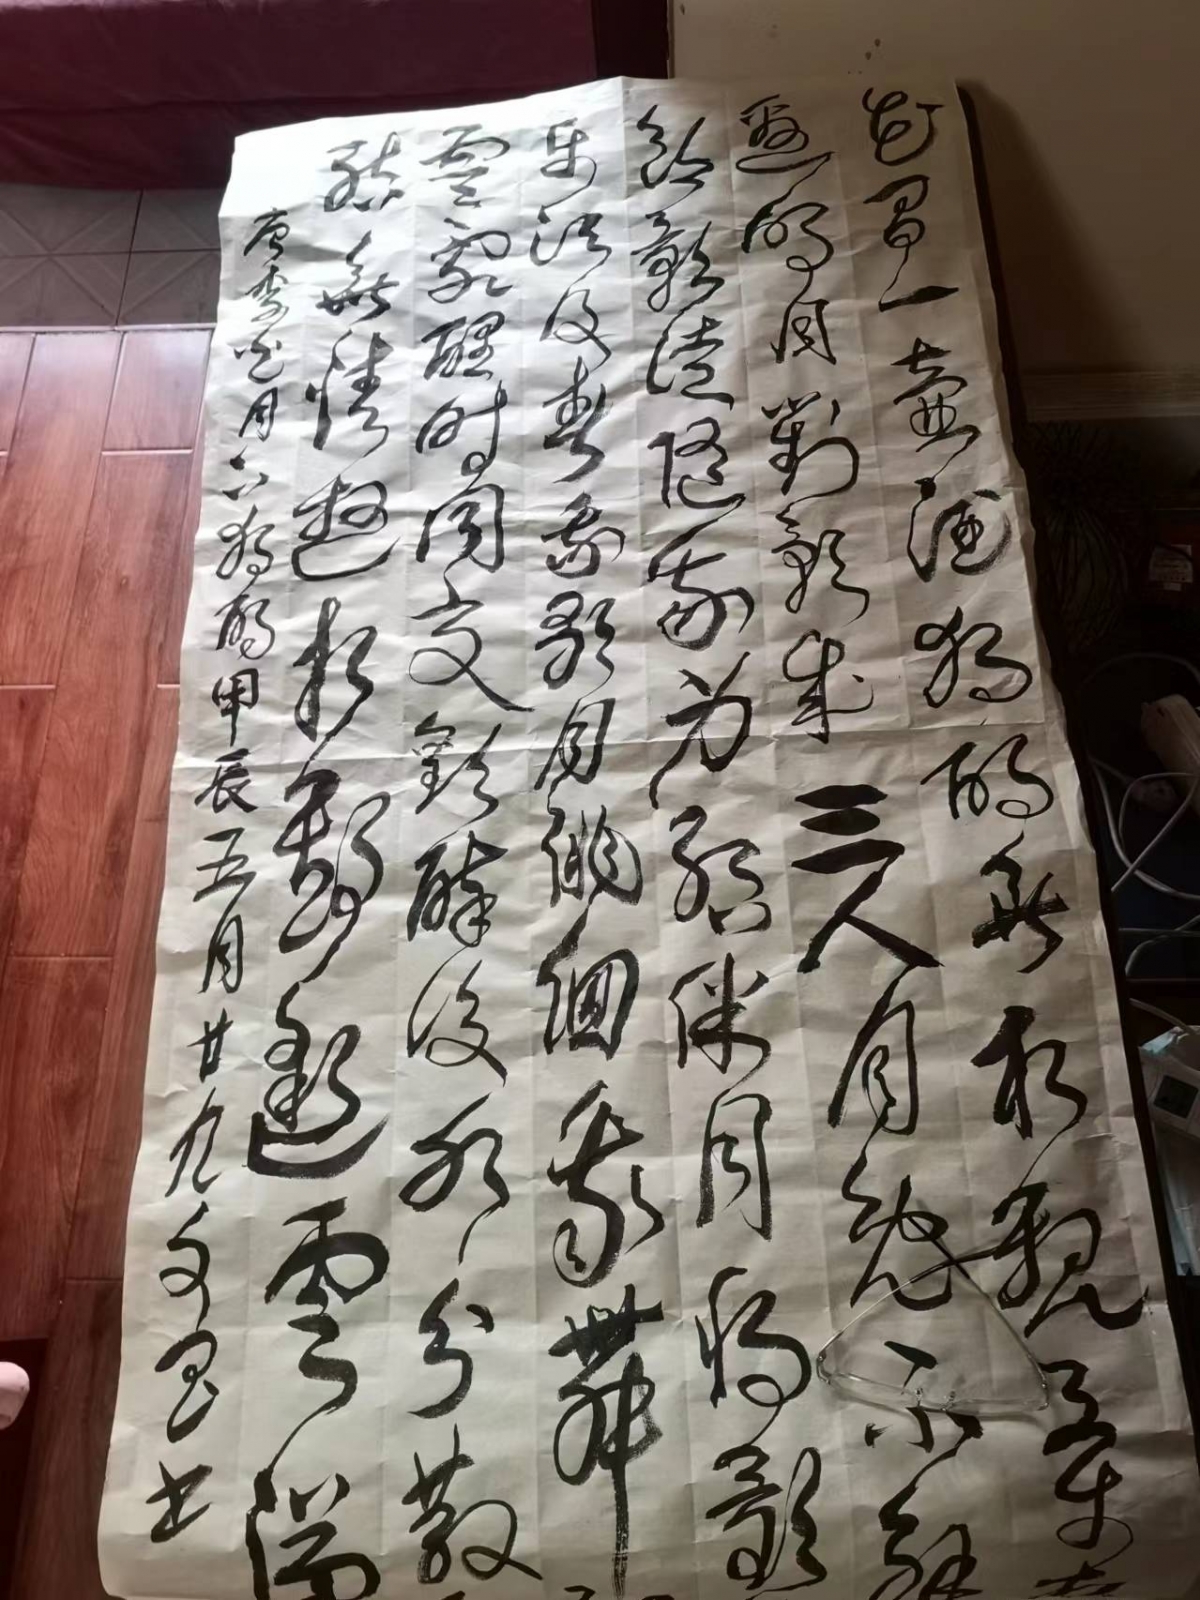 花間一壺酒獨酌無相親舉
邀明月對影成三人月既不解
飲影徒隨我身暫伴月將影
樂須及春我歌月徘徊我舞
零亂醒时同交歡醉後各分散
結無情遊相期邈雲漢
唐李白月下獨酌甲辰五月廿九文书